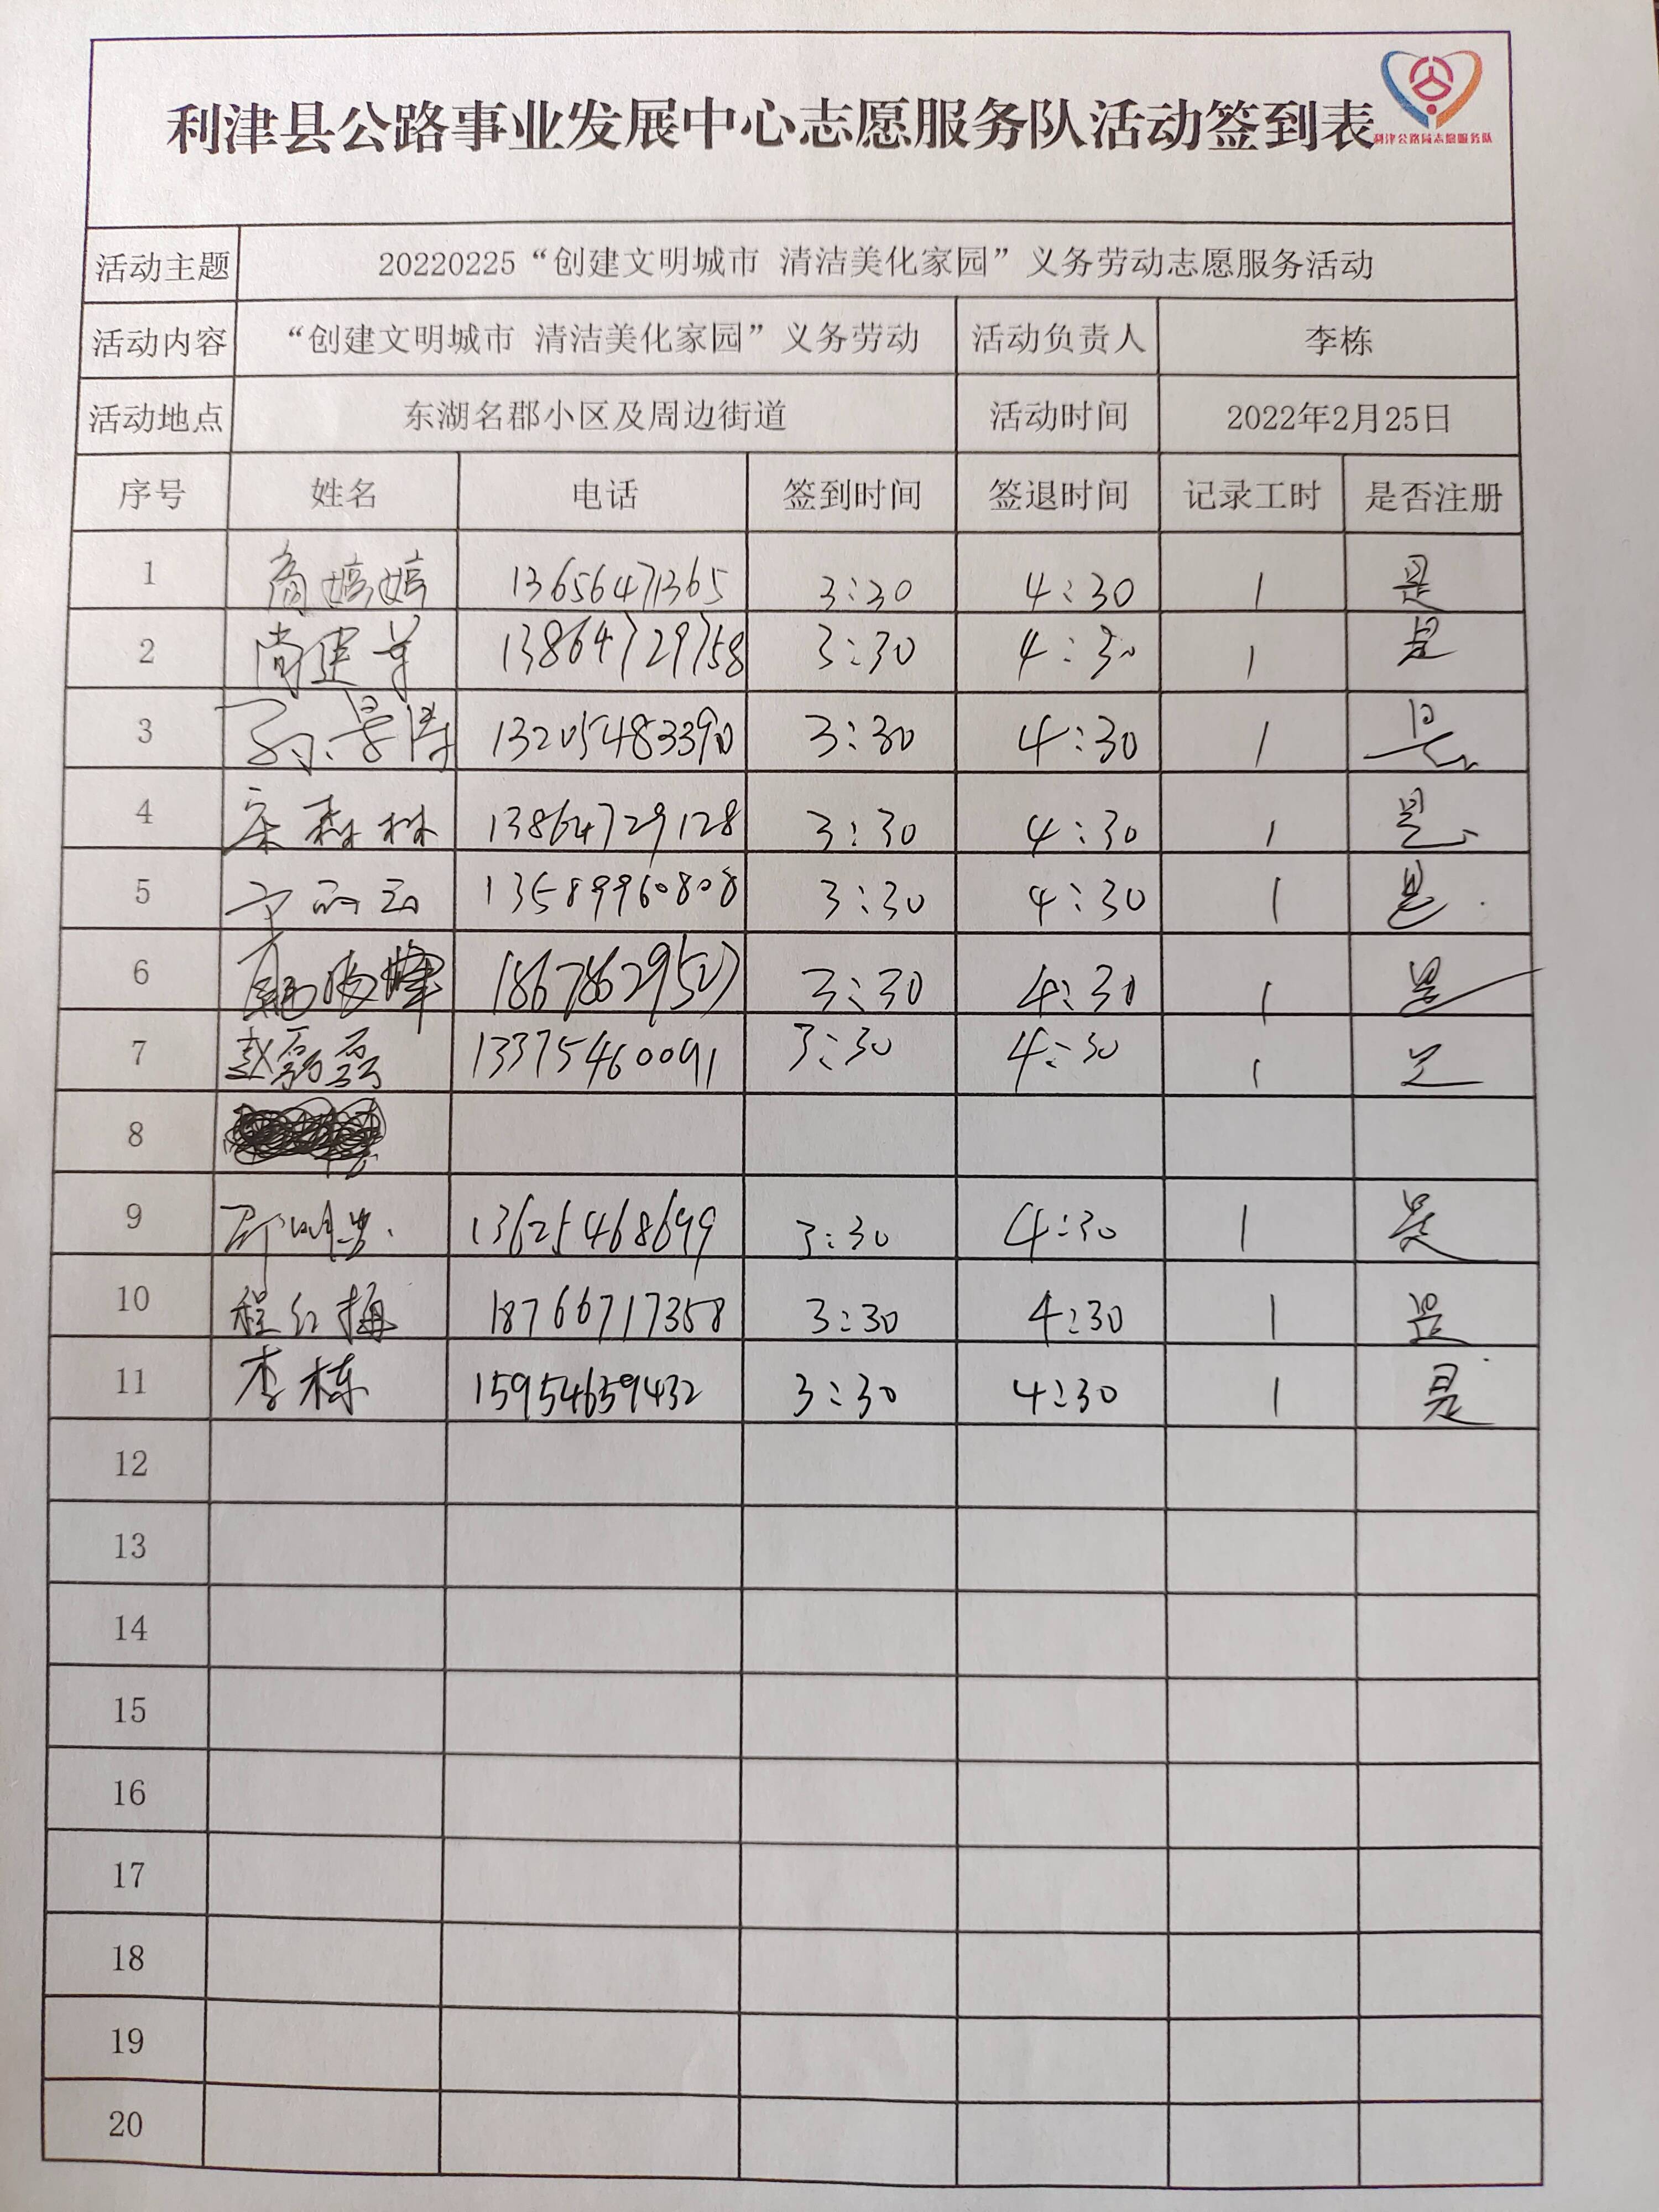 利津县公路事业发展中心志愿服务队活动签到表
利津公路局志愿服务队
活动主题 20220225“创建文明城市 清洁美化家园”义务劳动志愿服务活动
活动内容 “创建文明城市 清洁美化家园”义务劳动 活动负责人 李栋
活动地点 东湖名郡小区及周边街道 活动时间 2022年2月25日
序号 姓名 电话 签到时间 签退时间 记录工时 是否注册
1 商婷婷 13656471365 3:30 4:30 1 是
2 尚建军 13864729758 3:30 4:30 1 是
3 孙景涛 13205483390 3:30 4:30 1 是
4 宋森林 13864729128 3:30 4:30 1 是
5 13589960808 3:30 4:30 1 是
6 3:30 4:30 1 是
7 赵磊磊 13375460091 3:30 4:30 1 是
8
9 13625468699 3:30 4:30 1 是
10 程红梅 18766717358 3:30 4:30 1 是
11 李栋 15954659432 3:30 4:30 1 是
12
13
14
15
16
17
18
19
20